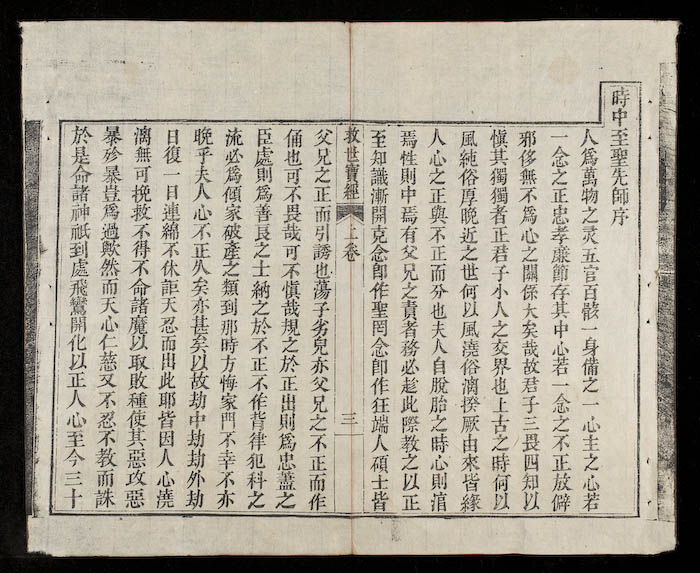 時中至聖先師序
人爲萬物之灵五官百骸一身備之一心主之心若
一念之正忠孝廉節存其中心若一念之不正放僻
邪侈無不爲心之關係大矣哉故君子三畏四知以
慎其獨獨者正君子小人之交界也上古之時何以
風純俗厚晚近之世何以風澆俗漓揆厥由來皆緣
人心之正與不正而分也夫人自脫胎之時心則渲
焉性則中焉有父兄之責者務必趁此際教之以正
至知識漸開克念卽作聖罔念卽作狂端人碩士皆
救世寶經 上卷 三
父兄之正而引誘也蕩子劣兒亦父兄之不正而作
俑也可不畏哉可不慎哉規之於正出則爲忠藎之
臣處則爲善良之士納之於不正不作背律犯科之
流必爲傾家破產之類到那時方悔家門不幸不亦
晚乎夫人心不正久矣亦甚矣以故劫中劫劫外劫
日復一日連綿不休詎天忍而出此耶皆因人心澆
漓無可挽救不得不命諸魔以取敗種使其惡攻惡
暴殄暴豈爲過歟然而天心仁慈又不忍不教而誅
於是命諸神祇到處飛鸞開化以正人心至今三十